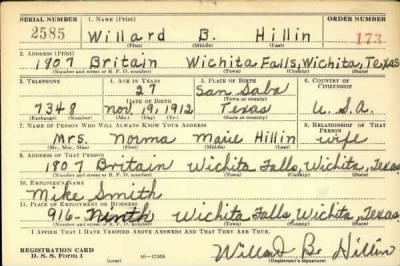 SERIAL NUMBER 1. NAME (Print) ORDER NUMBER
2585 Willard B. Hillin 173
(First) (Middle) (Last)
2. ADDRESS (Print)
1807 Britain Wichita Falls, Wichita, Texas
(Number and street or R. F. D. number) (Town) (County) (State)
3. TELEPHONE 4. AGE IN YEARS 5. PLACE OF BIRTH 6. COUNTRY OF CITIZENSHIP
27 San Saba
DATE OF BIRTH (Town or county)
7348 Nov. 19, 1912 Texas U.S.A.
(Mo.) (Day) (Yr.) (State or country)
7. NAME OF PERSON WHO WILL ALWAYS KNOW YOUR ADDRESS 8. RELATIONSHIP OF THAT PERSON
Mrs. Norma Marie Hillin wife
(Mr., Mrs., Miss) (First) (Middle) (Last)
9. ADDRESS OF THAT PERSON
1807 Britain Wichita Falls, Wichita, Texas
(Number and street or R. F. D. number) (Town) (County) (State)
10. EMPLOYER'S NAME
Mike Smith
11. PLACE OF EMPLOYMENT OR BUSINESS
916-Ninth Wichita Falls, Wichita, Texas
(Number and street or R. F. D. number) (Town) (County) (State)
I AFFIRM THAT I HAVE VERIFIED ABOVE ANSWERS AND THAT THEY ARE TRUE.
REGISTRATION CARD Willard B. Hillin
D. S. S. Form 1 (over) 16—17105 (Registrant's signature)